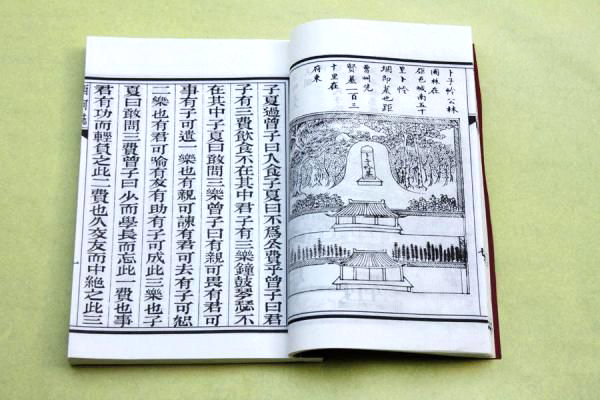 卜子公林
林在
邑城南五十
里卜
堌即墓也距
曹州先
賢墓一百三
十里在
府東
子夏過曾子曰入食子夏曰不爲公費乎曾子曰君
子有三費飲食不在其中君子有三樂鐘鼓琴瑟不
在其中子夏曰敢問三樂曾子曰有親可畏有君可
事有子可遺一樂也有親可諫有君可去有子可怒
二樂也有君可喻有友有助有子可成此三樂也子
夏曰敢問三費曾子曰少而學長而忘此一費也事
君有功而輕負之此二費也久交友而中絕之此三
西河志